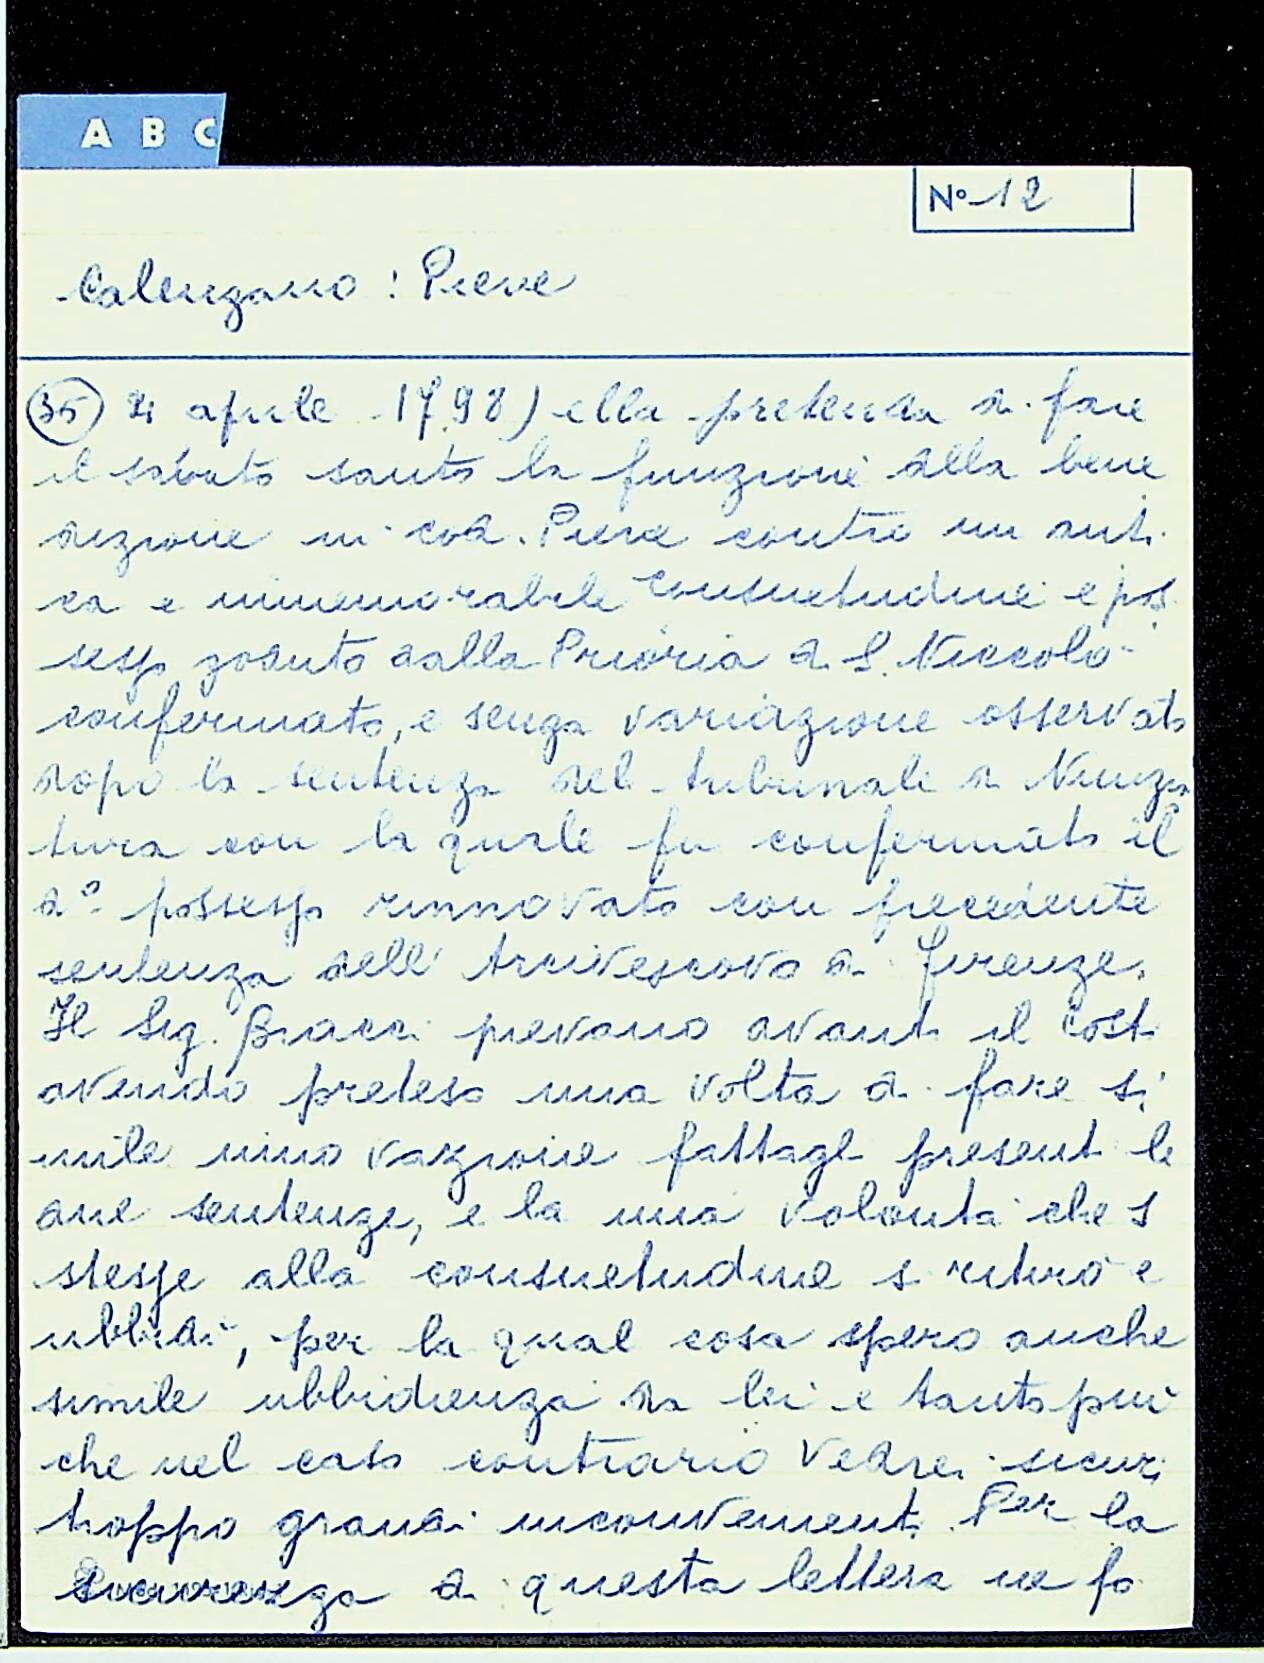 A B C
Nº 12
Calenzano: Pieve
35 4 aprile 1798) ella pretenda di fare
il sabato santo la funzione della bene
dizione in cod. Pieve contro un anti
ca e immemorabile consuetudine e pos
sesso goduto dalla Prioria di S. Niccolò
confermato, e senza variazione osservato
dopo la sentenza del tribunale di Nunzia
tura con la quale fu confermato il
dº possesso rinnovato con precedente
sentenza dell' Arcivescovo di Firenze.
Il Sig. Bracci pievano avanti il Costi
avendo preteso una volta di fare si
mile innovazione fattagli presenti le
due sentenze, e la mia volontà che si
stesse alla consuetudine si ritirò e
ubbidì, per la qual cosa spero anche
simile ubbidienza da lei e tanto più
che nel caso contrario vedrei sicuri
troppo grandi inconvenienti. Per la
sicurezza di questa lettera ne fo